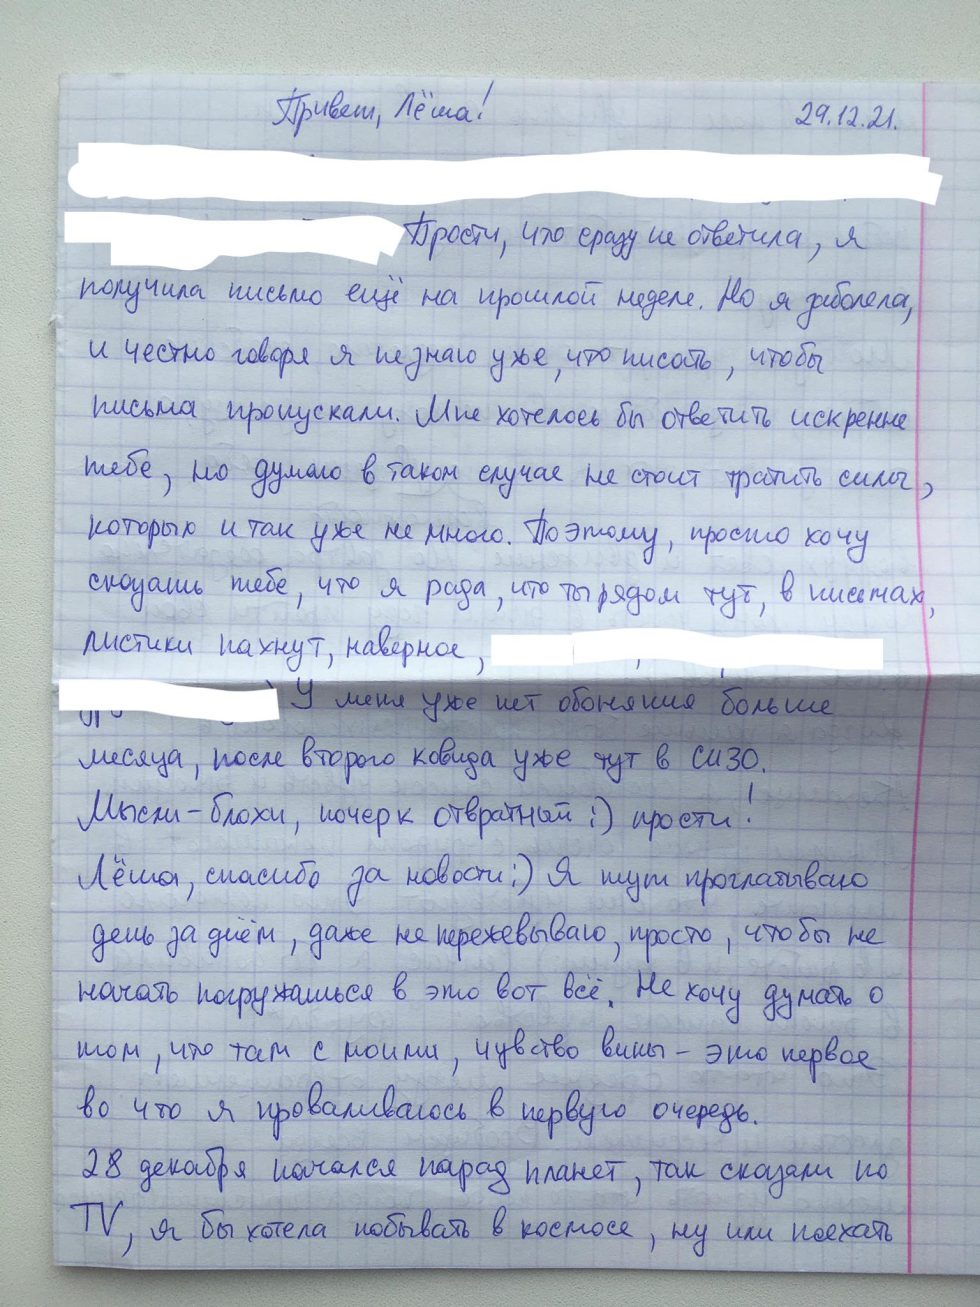 Привет, Лёша! 29.12.21.
Прости, что сразу не ответила, я
получила письмо ещё на прошлой неделе. Но я заболела,
и честно говоря я не знаю уже, что писать, чтобы
письма пропускали. Мне хотелось бы ответить искренне
тебе, но думаю в таком случае не стоит тратить силы,
которых и так уже не много. Поэтому, просто хочу
сказать тебе, что я рада, что ты рядом тут, в письмах,
листики пахнут, наверное,
У меня уже нет обоняния больше
месяца, после второго ковида уже тут в СИЗО.
Мысли-блохи, почерк отвратный :) прости!
Лёша, спасибо за новости :) Я тут проглатываю
день за днём, даже не пережевываю, просто, чтобы не
начать погружаться в это вот всё. Не хочу думать о
том, что там с моими, чувство вины - это первое
во что я проваливаюсь в первую очередь.
28 декабря начался парад планет, так сказали по
TV, я бы хотела побывать в космосе, ну или поехать